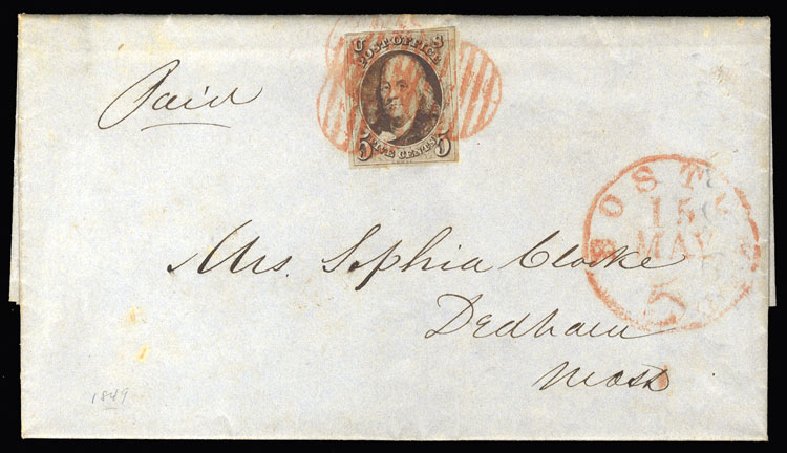 Paid
U S
POST OFFICE
FIVE CENTS
5 5
BOSTON
15
MAY
5
Mrs. Sophia Clarke
Dedham
Mass
1849